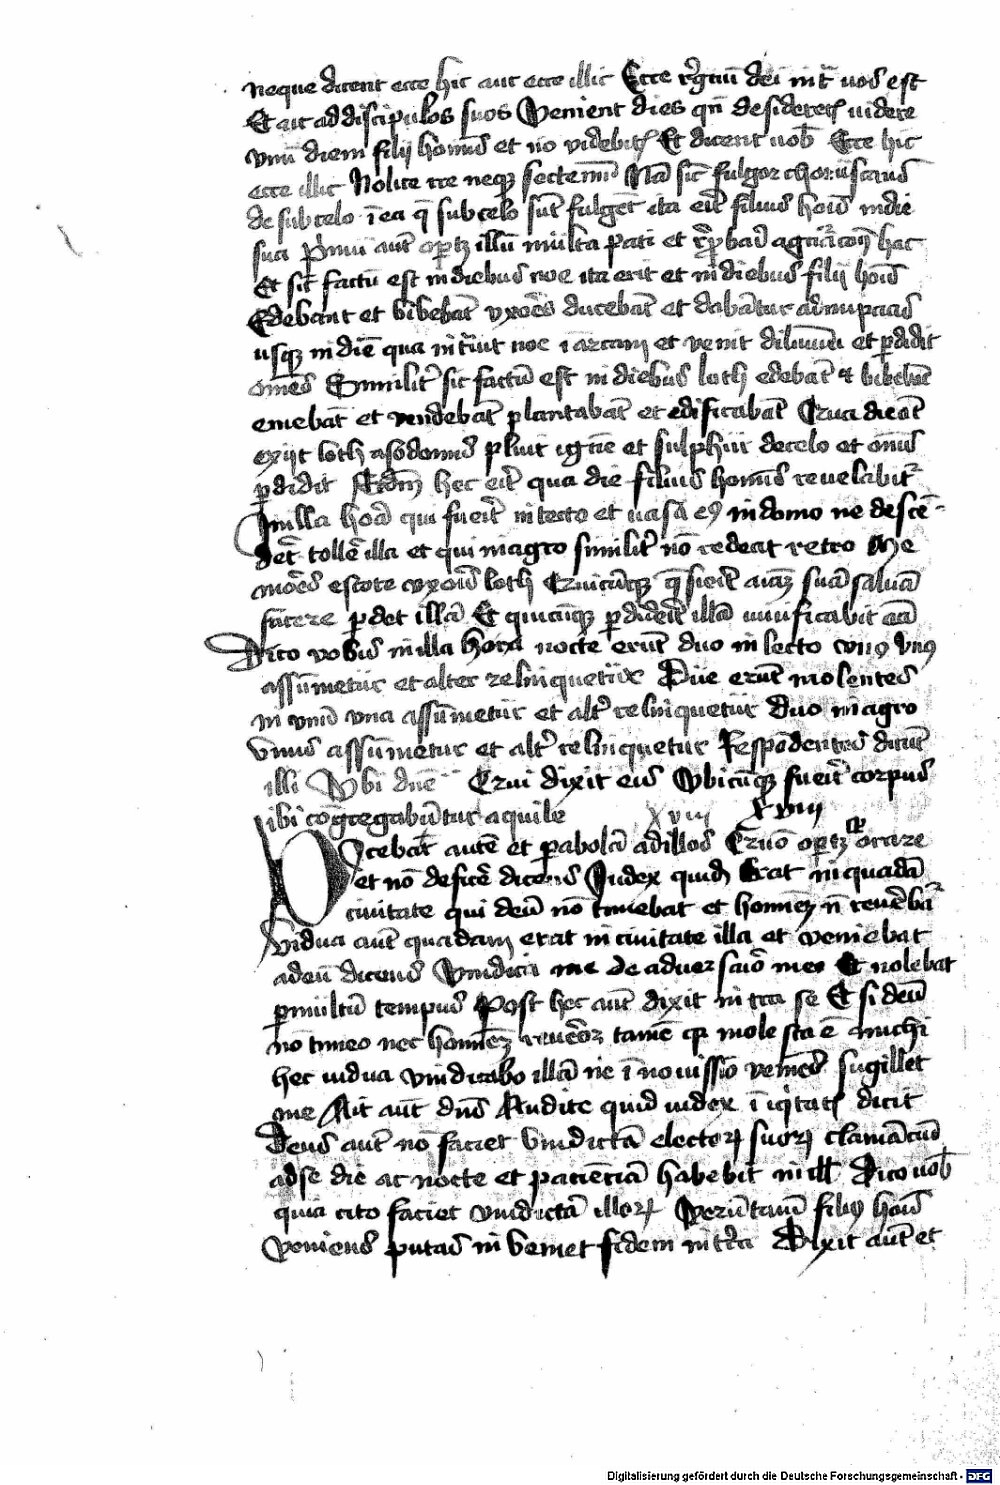 neque dicent ecce hic aut ecce illic Ecce rēgnū dei int̄ vos est
Et ait ad discipulos suos Venient dies qn̄ desideretꝭ videre
vnū diem filij hoīnis et nō videbitꝭ Et dicent vob̄ Ecce hic
ecce illic Nolite ire neqꝫ sectemī Nā sic̄ fulgor choruscans
de sub celo ī ea q̄ sub celo sūt fulget ita eit̄ filius hoīs in die
sua P̄mū aut̄ oportꝫ illū multa pati et rep̄bari a gn̄acōe hac
Et sic̄ factū est in diebus noe ita erit et in diebus filij hoīs
Edebant et bibebāt vxores ducebāt et dabātur ad nupcias
usqꝫ in diē qua intrāuit noe ī arcam et venit diluuiū et ꝑdidit
om̄es Similit̄ sic̄ factū est in diebus loth edebāt et bibebāt
emebāt et vendebāt plantabāt et edificabāt Qua die āt
exijt loth a sodomis pluit ignē et sulphur de celo et om̄s
ꝑdidit Scdm̄ hec eit̄ qua die filius hominis reuelabit̄
In illa hora qui fueit̄ in tecto et uasa eiꝰ in domo ne descē-
det̄ tolle̅ illa et qui in agro similit̄ nō redeat retro Me
mores estote vxoris loth Quicūqꝫ q̄sieit̄ aīaꝫ suā saluā
facere ꝑdet illā Et quicūqꝫ ꝑdideit̄ illā viuificabit eā
Dico vobis in illa hora nocte erūt duo in lecto vno vnꝰ
assūmetur et alter relinquetur Due erūt molentes
in vnū vna assūmetur et alt̄ relinquetur duo in agro
vnus assūmetur et alt̄ relinquetur Respōdentes dicūt
illi Vbi dn̄e Qui dixit eis Vbicūqꝫ fueit̄ corpus
ibi cōgregabūtur aquile xviii xviii
Dicebat autē et ꝑabolā ad illos Qm̄ oportꝫ semꝑ orare
et nō deficē dicens Iudex quidā Erat in quadā
ciuitate qui deū nō timebat et hominē n̄ reuerēbat̄
Vidua aut̄ quadam erat in ciuitate illa et veniebat
ad eū dicens Vindica me de aduersario meo Et nolebat
ꝑ multū tempus Post hec aut̄ dixit intra se Et si deū
nō timeo nec hominē reuereor tamē qꝫ molesta ē michi
hec uidua vindicabo illā ne ī nouissīo veniēs sugillet
me Ait aut̄ dn̄s Audite quid iudex ī iqͥtatꝭ dicit
Deus aut̄ nō faciet vindictā electorꝝ suorꝝ clamāciū
ad se die ac nocte et pacientiā habebit in ill̄ Dico vob̄
quia cito faciet vindictā illorꝝ Verūtamē filiꝰ hoīs
veniens putas inveniet fidem in t̄ra Dixit aut̄ et
Digitalisierung gefördert durch die Deutsche Forschungsgemeinschaft - DFG